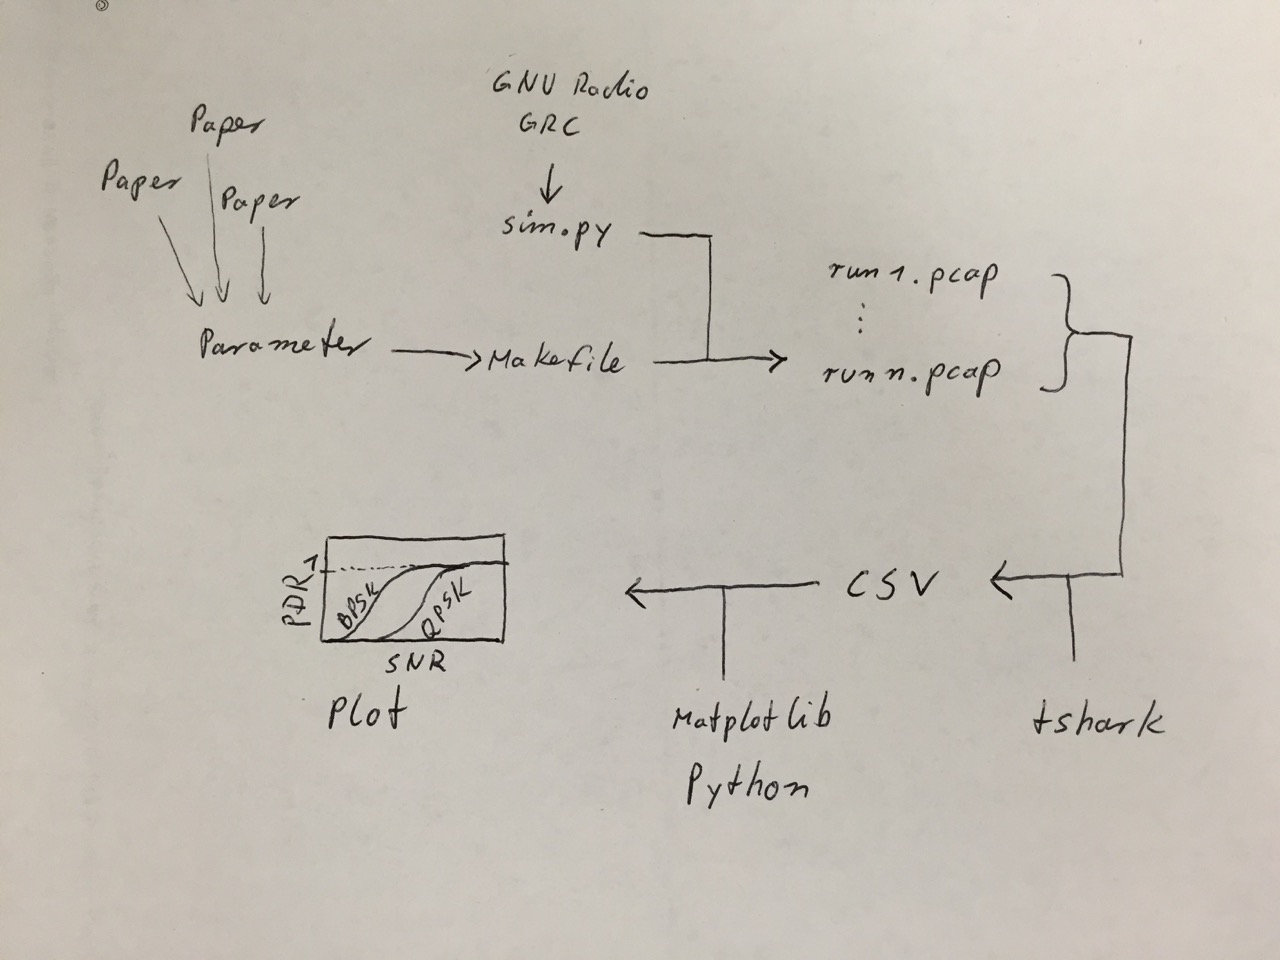 GNU Radio
GRC
Paper
Paper
Paper
sim.py
Parameter
Makefile
run 1. pcap
⋮
run n. pcap
CSV
tshark
Matplotlib
Python
1
PDR
BPSK
QPSK
SNR
Plot